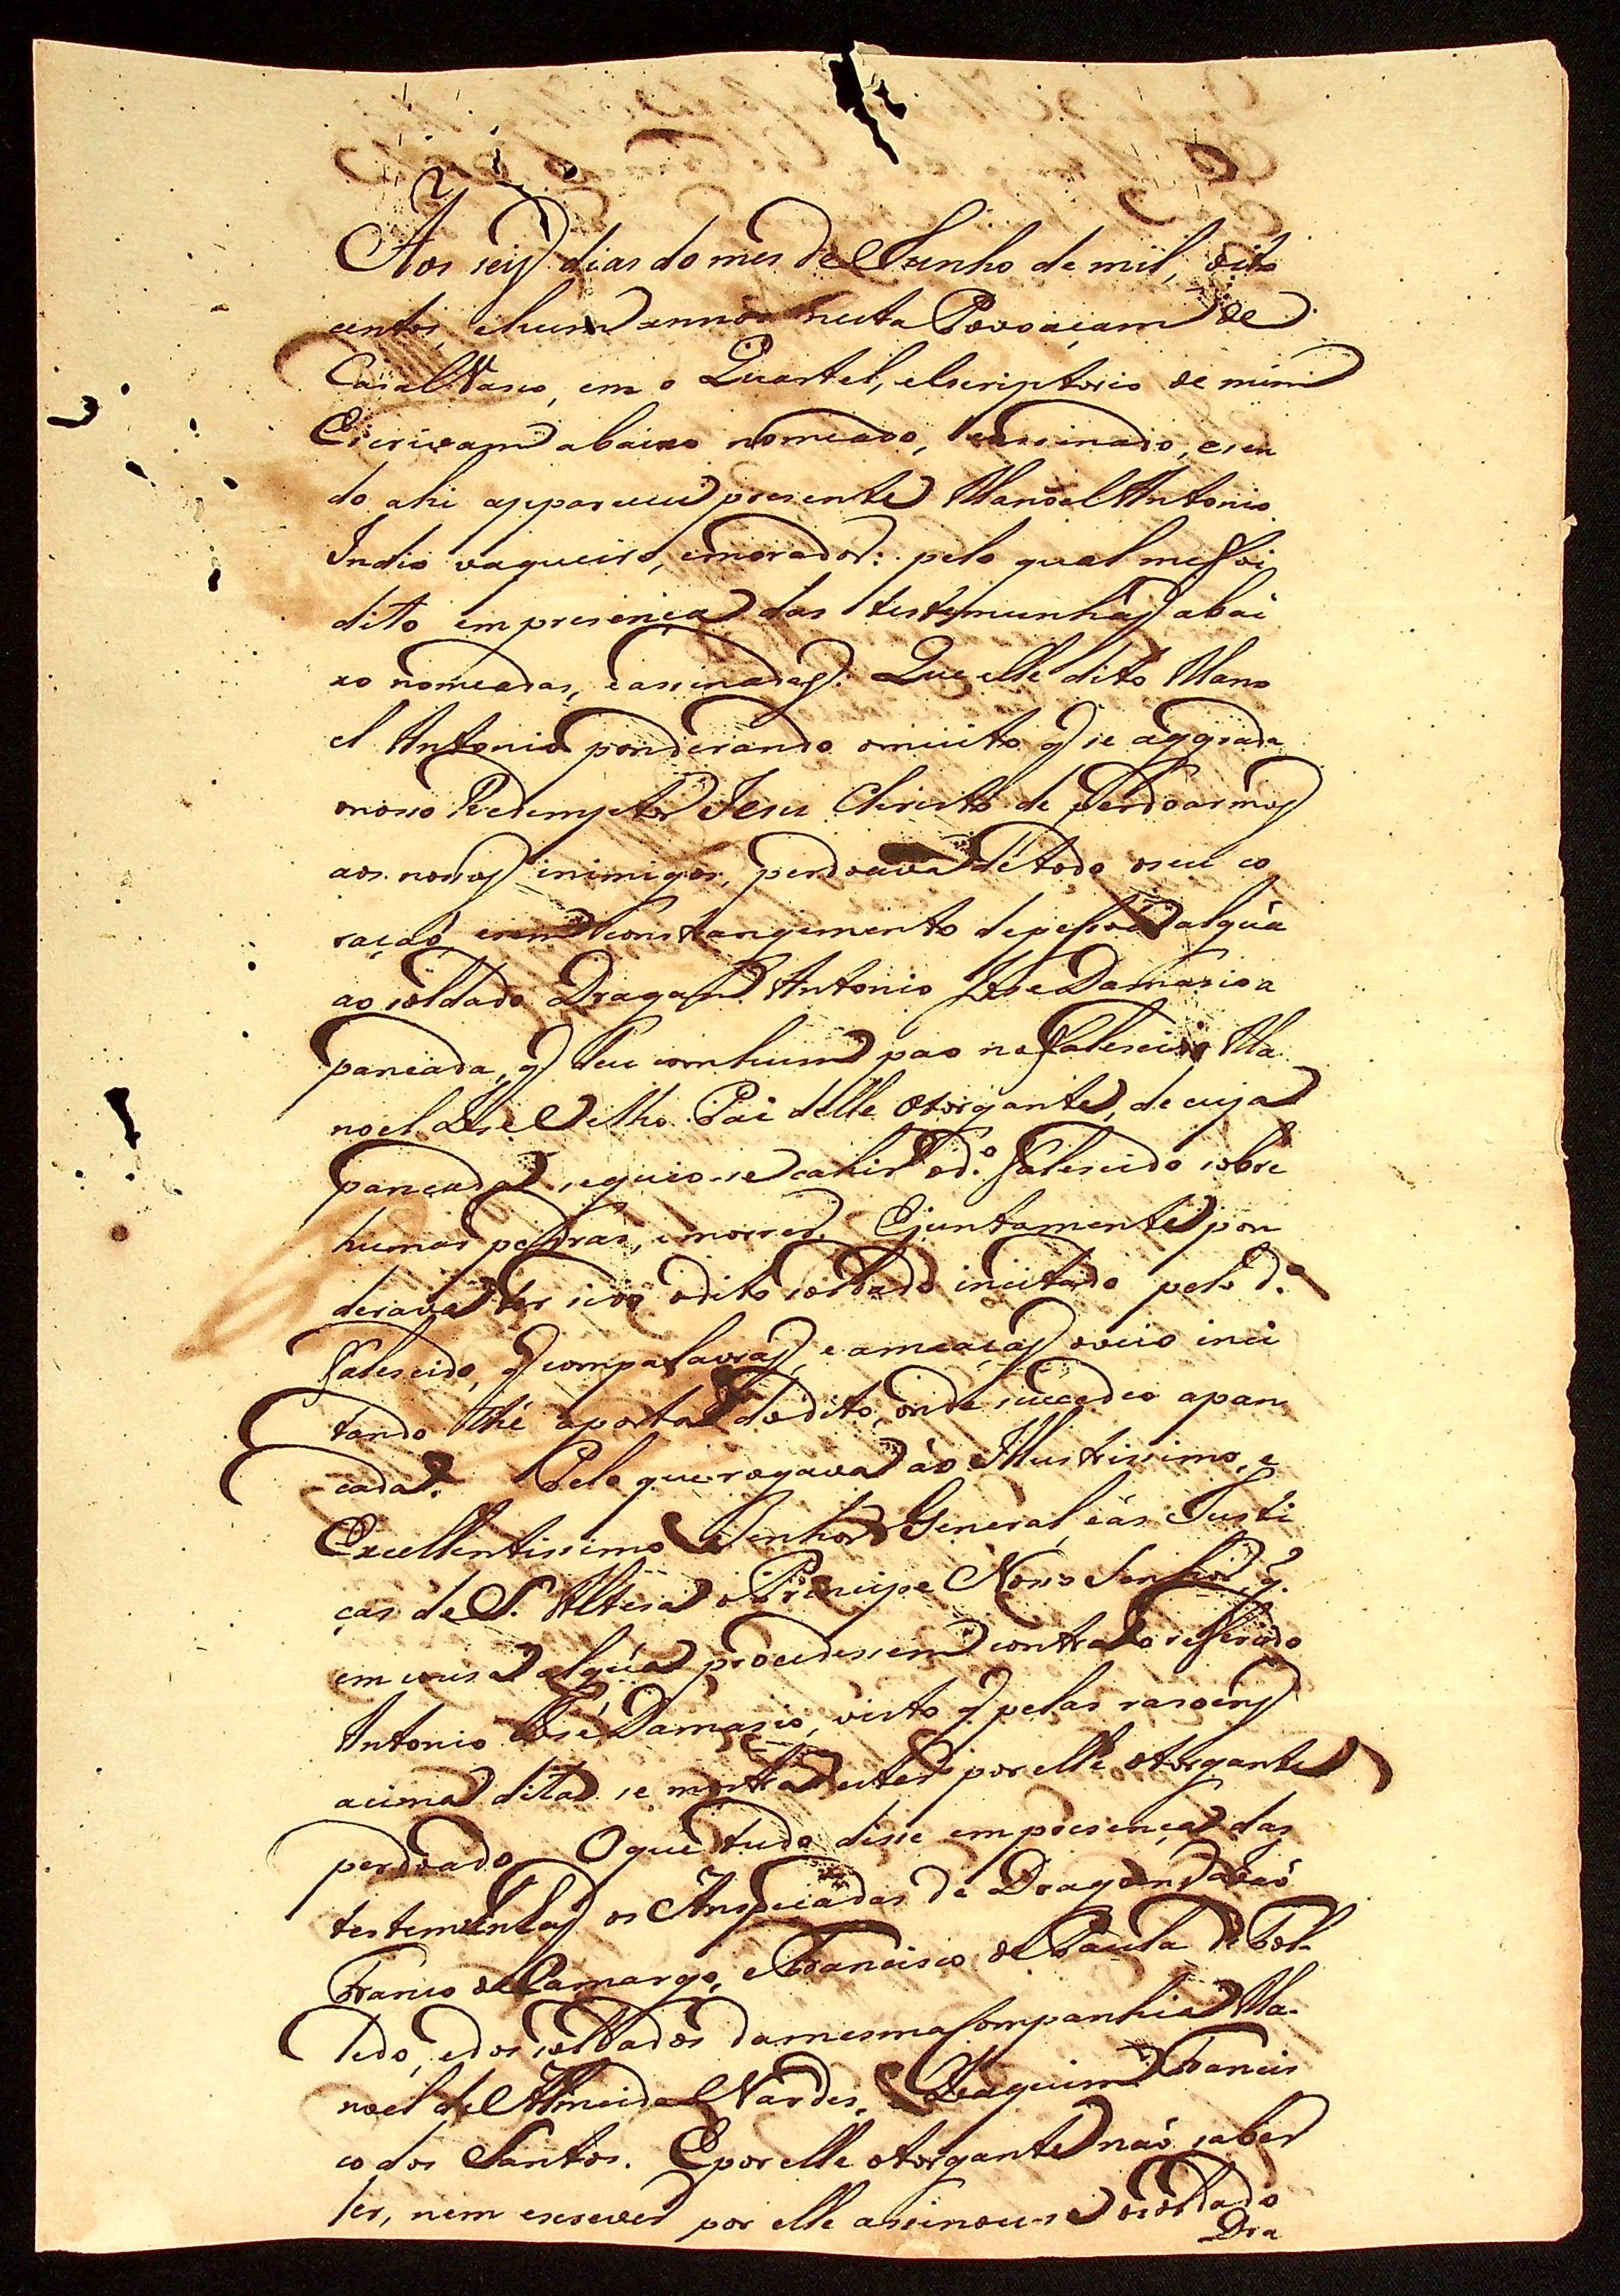 Aos seis dias do mes de Junho de mil, oito
centos, e hum annos nesta Povoaçam de
Casal Vasco, em o Quartel, e Escriptorio de mim
Escrivam abaixo nomeado, e assinado, e sen
do ahi appareceu presente Manoel Antonio
Indio vaqueiro, e morador: pelo qual me foi
dito em presença das testemunhas abai
xo nomeadas, e assinadas: Que elle dito Mano
el Antonio ponderando o muito q̃ se aggrada
o nosso Redemptor Jesu Christo de perdoarmos
aos nossos inimigos, perdoava de todo o seu co
raçaõ e sem constrangimento de pessoa algũa
ao soldado Dragam Antonio Jose Damasio a
pancada, q̃ deu com hum pao no falescido Ma
noel Jose Velho Pai delle Otorgante, de cuja
pancada seguio-se cahir o d.º falescido sobre
humas pedras, e morrer. E juntamente pon
derava ter sido o dito soldado incitado pelo d.º
falescido, q̃ com palavras, e ameaças o veio inci
tando thé a porta do dito, onde succedeo a pan
cada. Pelo que rogava ao Illustrissimo, e
Excellentissimo Senhor General, e ás Justi
ças de S. Alteza o Principe Nosso Senhor, q̃
em cousa algũa procedessem contra o referido
Antonio José Damasio, visto q̃ pelas rasoens
acima ditas se mostra estar por elle otorgante
perdoado. O que tudo disse em presença das
testemunhas os Anspeçadas de Dragoens Joaõ
Franco de Camargo, e Francisco de Paula de Tol-
ledo, e dos soldados da mesma Companhia Ma-
noel de Almeida Nardes, Joaquim Francis
co dos Santos. E por elle otorgante naõ saber
ler, nem escrever por elle assinou-se o soldado
Dra